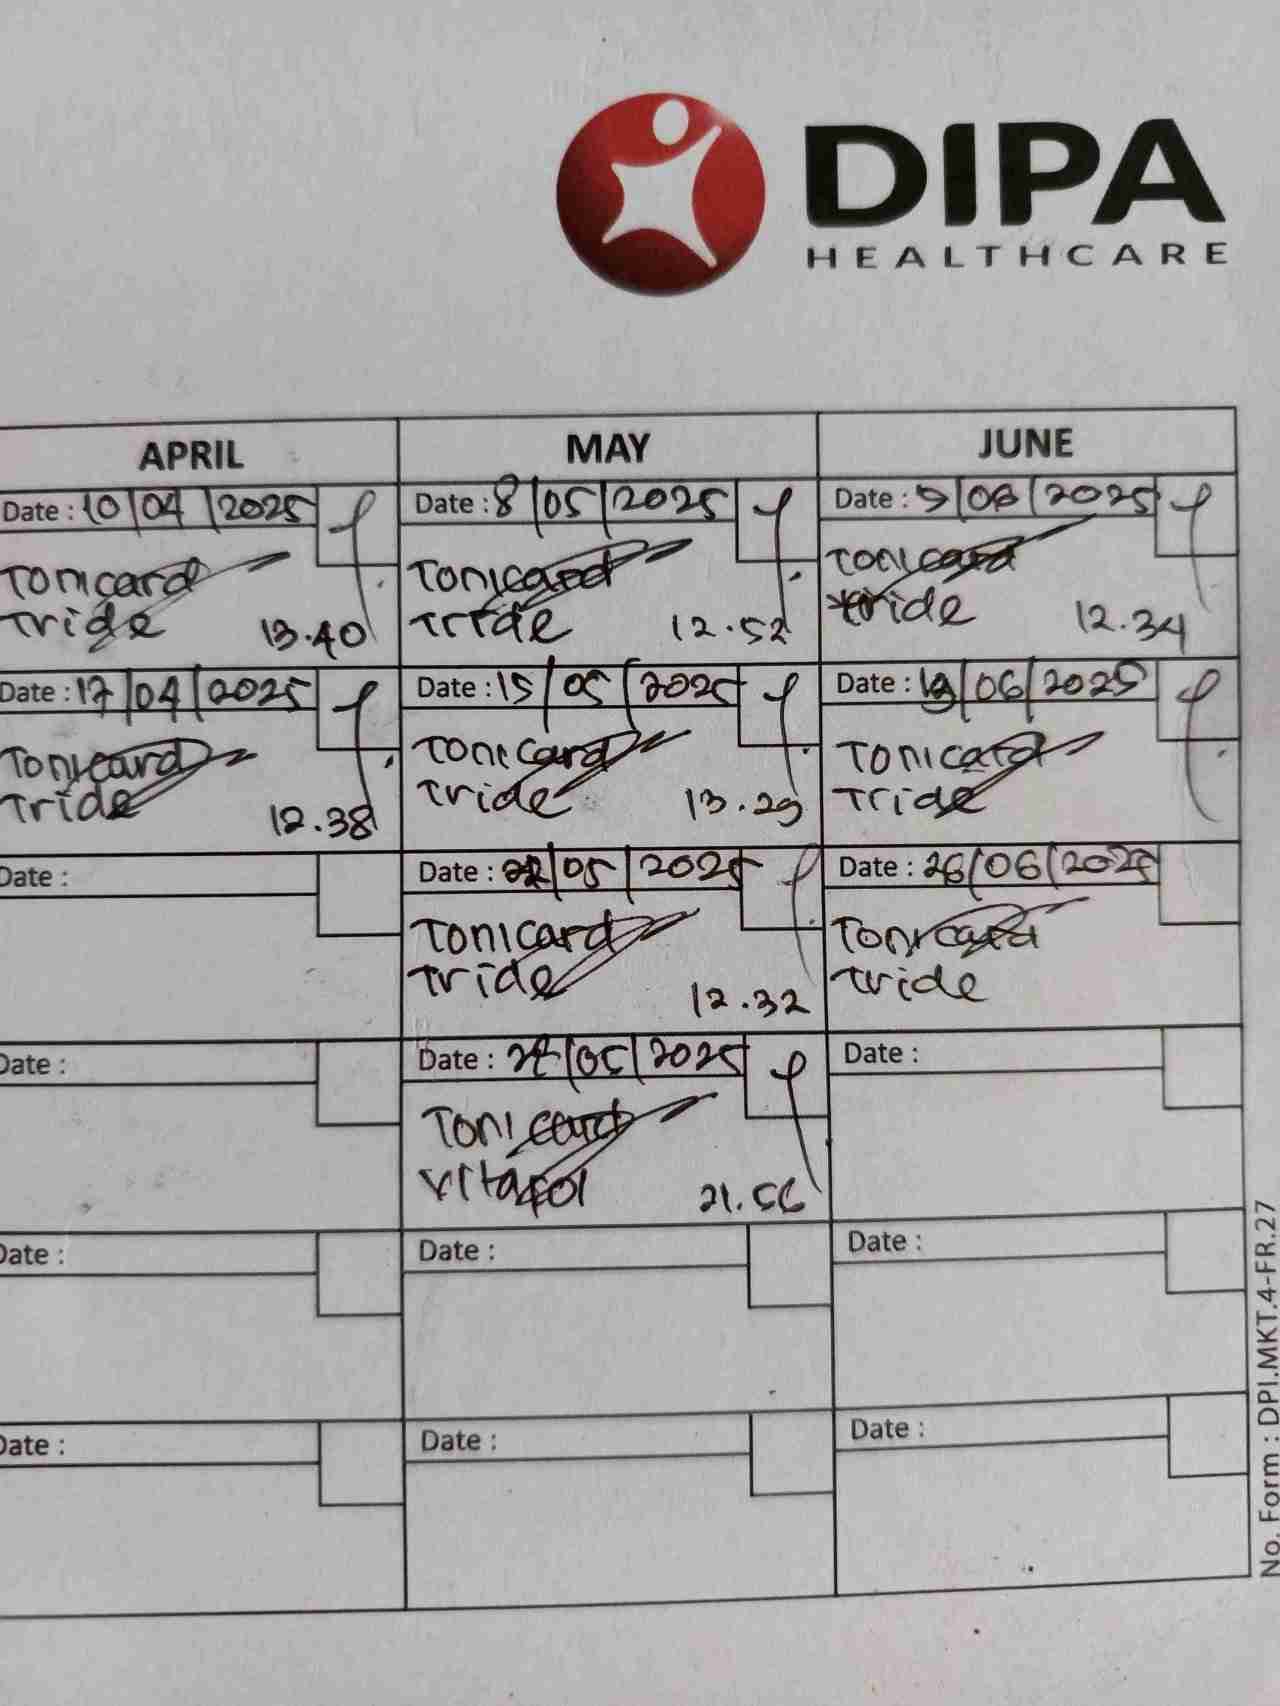 DIPA
HEALTHCARE
APRIL
MAY
JUNE
Date : 10/04/2025
Tonicard
Tride
13.40
Date : 8/05/2025
Tonicard
Tride
12.52
Date : 9/06/2025
Tonicard
Tride
12.34
Date : 17/04/2025
Tonicard
Tride
12.38
Date : 15/05/2025
Tonicard
Tride
13.29
Date : /06/2025
Tonicard
Tride
Date :
Date : 22/05/2025
Tonicard
Tride
12.32
Date : 26/06/2025
Tonicard
Tride
Date :
Date : /05/2025
Tonicard
Vitafol
21.56
Date :
Date :
Date :
Date :
Date :
Date :
Date :
No. Form : DPI.MKT.4-FR.27